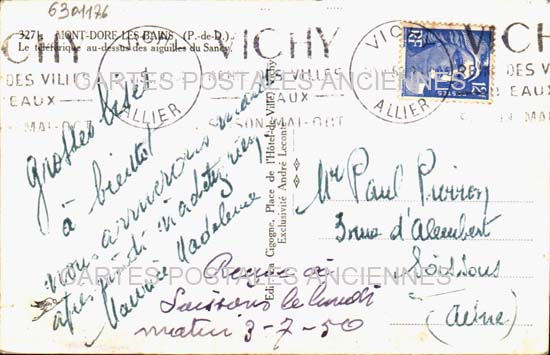 6301176
327 MONT-DORE-LES-BAINS. (P.-de-D.).
Le téléférique au-dessus des aiguilles du Sancy.
VICHY
ALLIER
VICHY
DES VILLES
EAUX
SAISON MAI-OCT
VICHY
ALLIER
RF
DES VILLES
EAUX
CARTES POSTALES ANCIENNES
grosses bises
à bientôt
nous arriverons mardi
après midi n'achetez rien
Maurice Madeleine
Reçue à
Soissons le lundi
matin 3-7-50
Edit. La Cigogne, Place de l'Hôtel-de-Ville, Vichy
Exclusivité André Leconte
Mr Paul
3 rue d'Alembert
Soissons
(Aisne)
CARTES POSTALES ANCIENNES